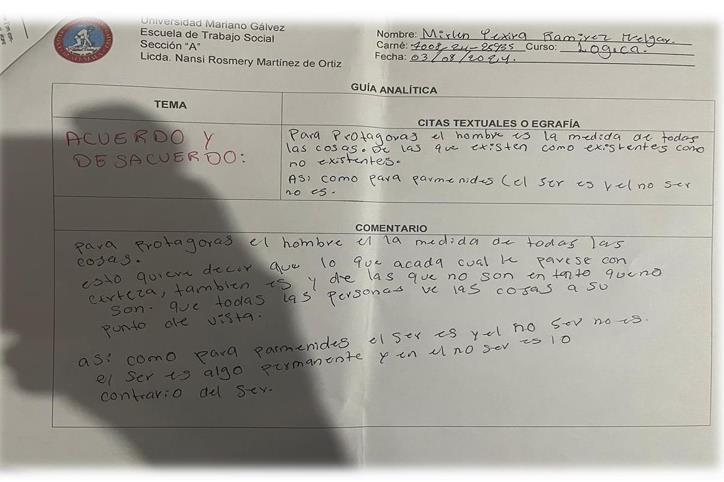 Universidad Mariano Gálvez
Escuela de Trabajo Social
Sección "A"
Licda. Nansi Rosmery Martínez de Ortiz
Nombre: Mirlin Yexira Ramirez Melgar.
Carné: Curso: Logica.
Fecha: 03/08/2024.
GUÍA ANALÍTICA
TEMA
CITAS TEXTUALES O EGRAFÍA
ACUERDO Y
DESACUERDO:
Para Protagoras el hombre es la medida de todas
las cosas. De las que existen como existentes como
no existentes.
Asi como para parmenides (el ser es y el no ser
no es.
COMENTARIO
para Protagoras el hombre el la medida de todas las
cosas.
esto quiere decir que lo que acada cual le parese con
certeza, tambien es y de las que no son en tanto que no
son. que todas las personas ve las cosas a su
punto de vista.
asi como para parmenides el ser es y el no ser no es.
el ser es algo permanente y en el no ser es lo
contrario del ser.